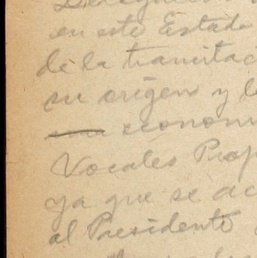 en este Estado
de la tramitac
su origen y l
econom
Vocales Prop
ya que se ac
al Presidente